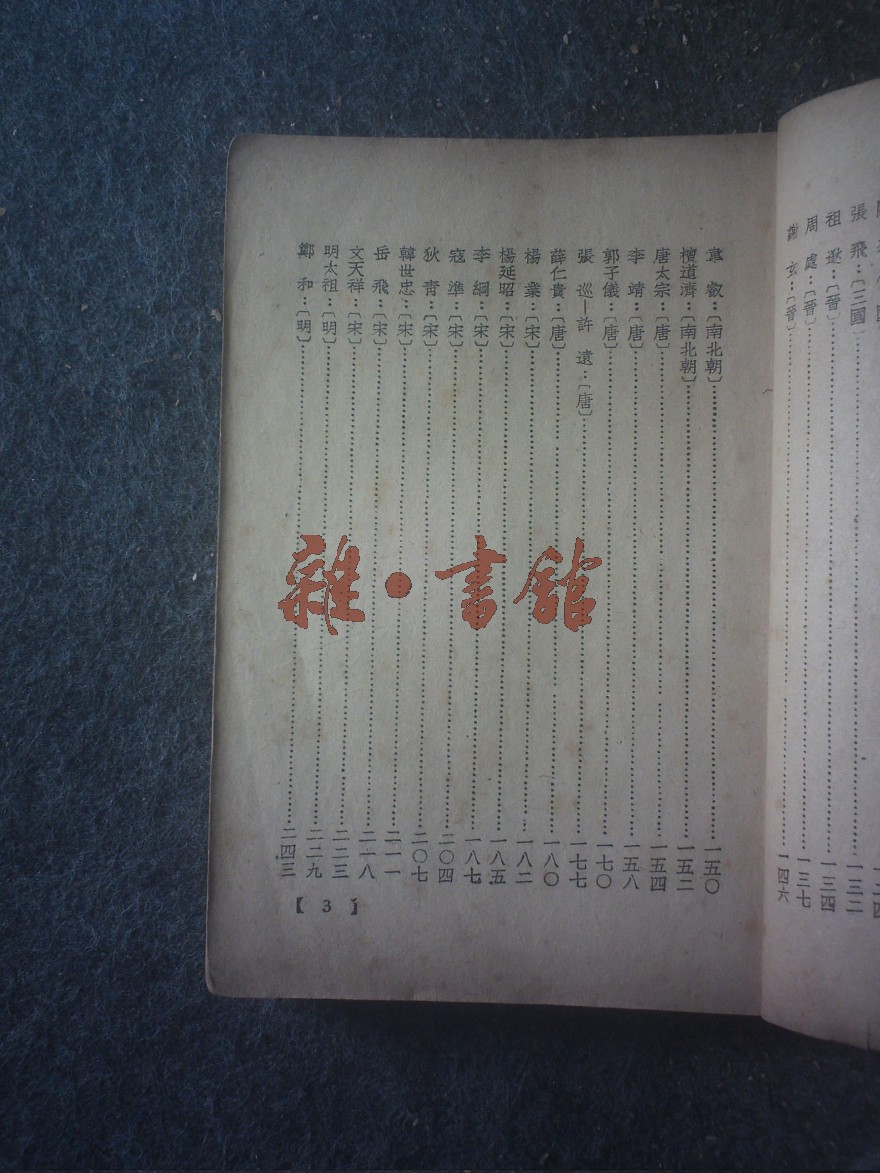 張飛：〔三國〕……一三二
祖逖：〔晉〕……一三四
周處：〔晉〕……一三七
謝玄：〔晉〕……一四六
韋叡：〔南北朝〕……一五〇
檀道濟：〔南北朝〕……一五二
唐太宗：〔唐〕……一五四
李靖：〔唐〕……一五八
郭子儀：〔唐〕……一七〇
張巡—許遠：〔唐〕……一七七
薛仁貴：〔唐〕……一八〇
楊業：〔宋〕……一八二
楊延昭：〔宋〕……一八五
李綱：〔宋〕……一八七
寇準：〔宋〕……二〇四
狄青：〔宋〕……二〇七
韓世忠：〔宋〕……二一一
岳飛：〔宋〕……二一八
文天祥：〔宋〕……二二三
明太祖：〔明〕……二二九
鄭和：〔明〕……二四三
【3】
雜·書館